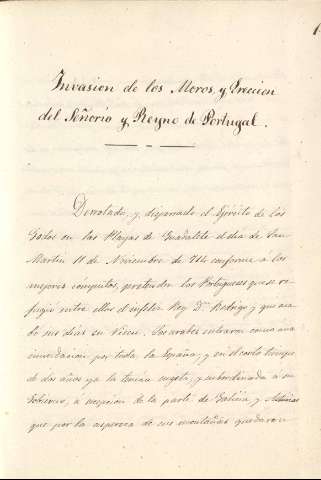 Invasion de los Moros, y Ereccion
del Señorio y Reyno de Portugal.
Derrotado, y disparado el Ejército de los
Godos en las Playas de Guadalete el dia de San
Martin 11 de Noviembre de 714 conforme a los
mejores computos, pretenden los Portugueses que se re-
fugió entre ellos el infeliz Rey Dn. Rodrigo y que aca-
bó sus dias en Viseu. Los arabes entraron como una
inundacion por toda la España, y en el corto tiempo
de dos años ya la tenian sugeta, y subordinada a su
Gobierno, á excepcion de la parte de Galicia y Asturias
que por la aspereza de sus montañas quedaron